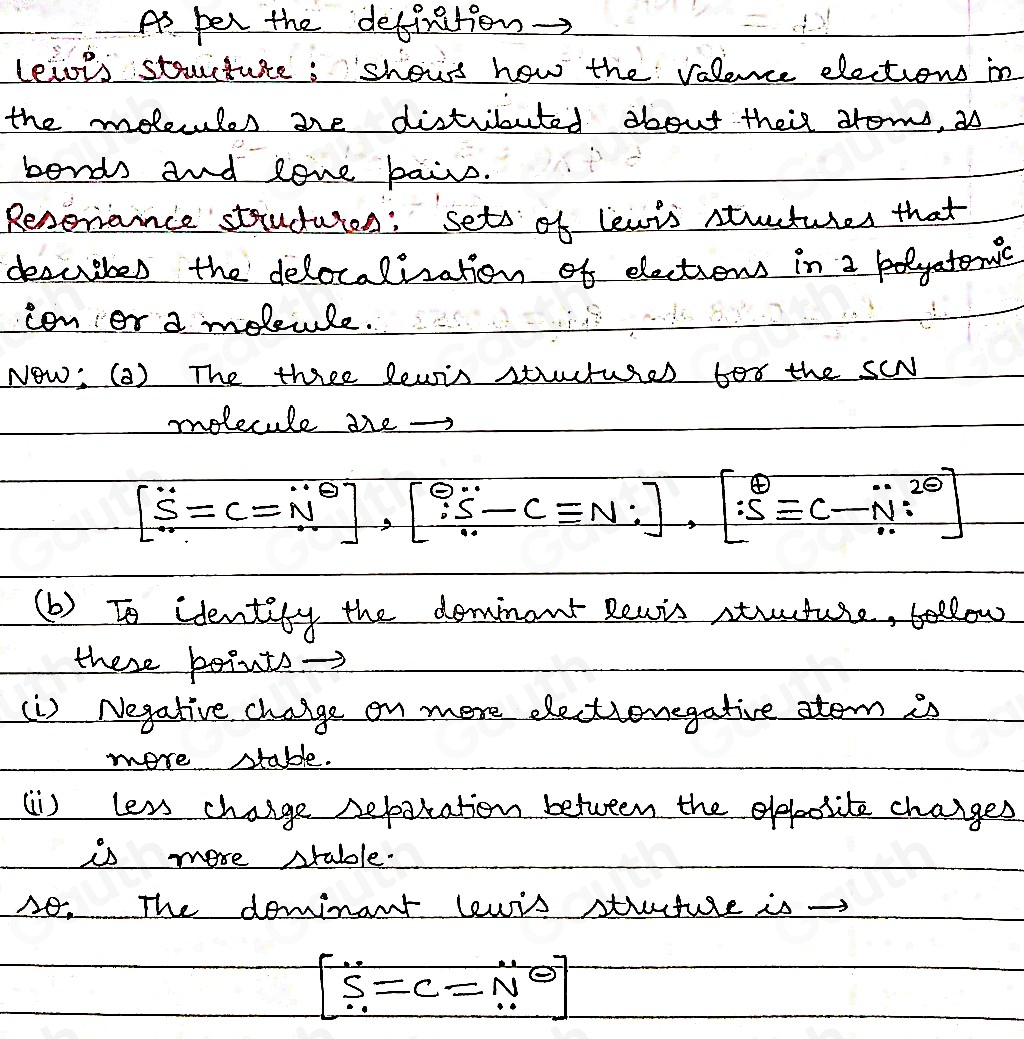 As per the definition →
Lewis structure : shows how the valence electrons in
the molecules are distributed about their atoms, as
bonds and lone pairs.
Resonance structures: sets of lewis structures that
describes the delocalisation of electrons in a polyatomic
ion or a molecule.
Now: (a) The three lewis structures for the SCN
molecule are →
[S̤̈=C=N̤̈⊖], [⊖:S̤̈-C≡N:], [:S⊕≡C-N̤̈:2⊖]
(b) To identify the dominant lewis structure, follow
these points →
(i) Negative charge on more electronegative atom is
more stable.
(ii) less charge separation between the opposite charges
is more stable.
so, The dominant lewis structure is →
[S̤̈=C=N̤̈⊖]